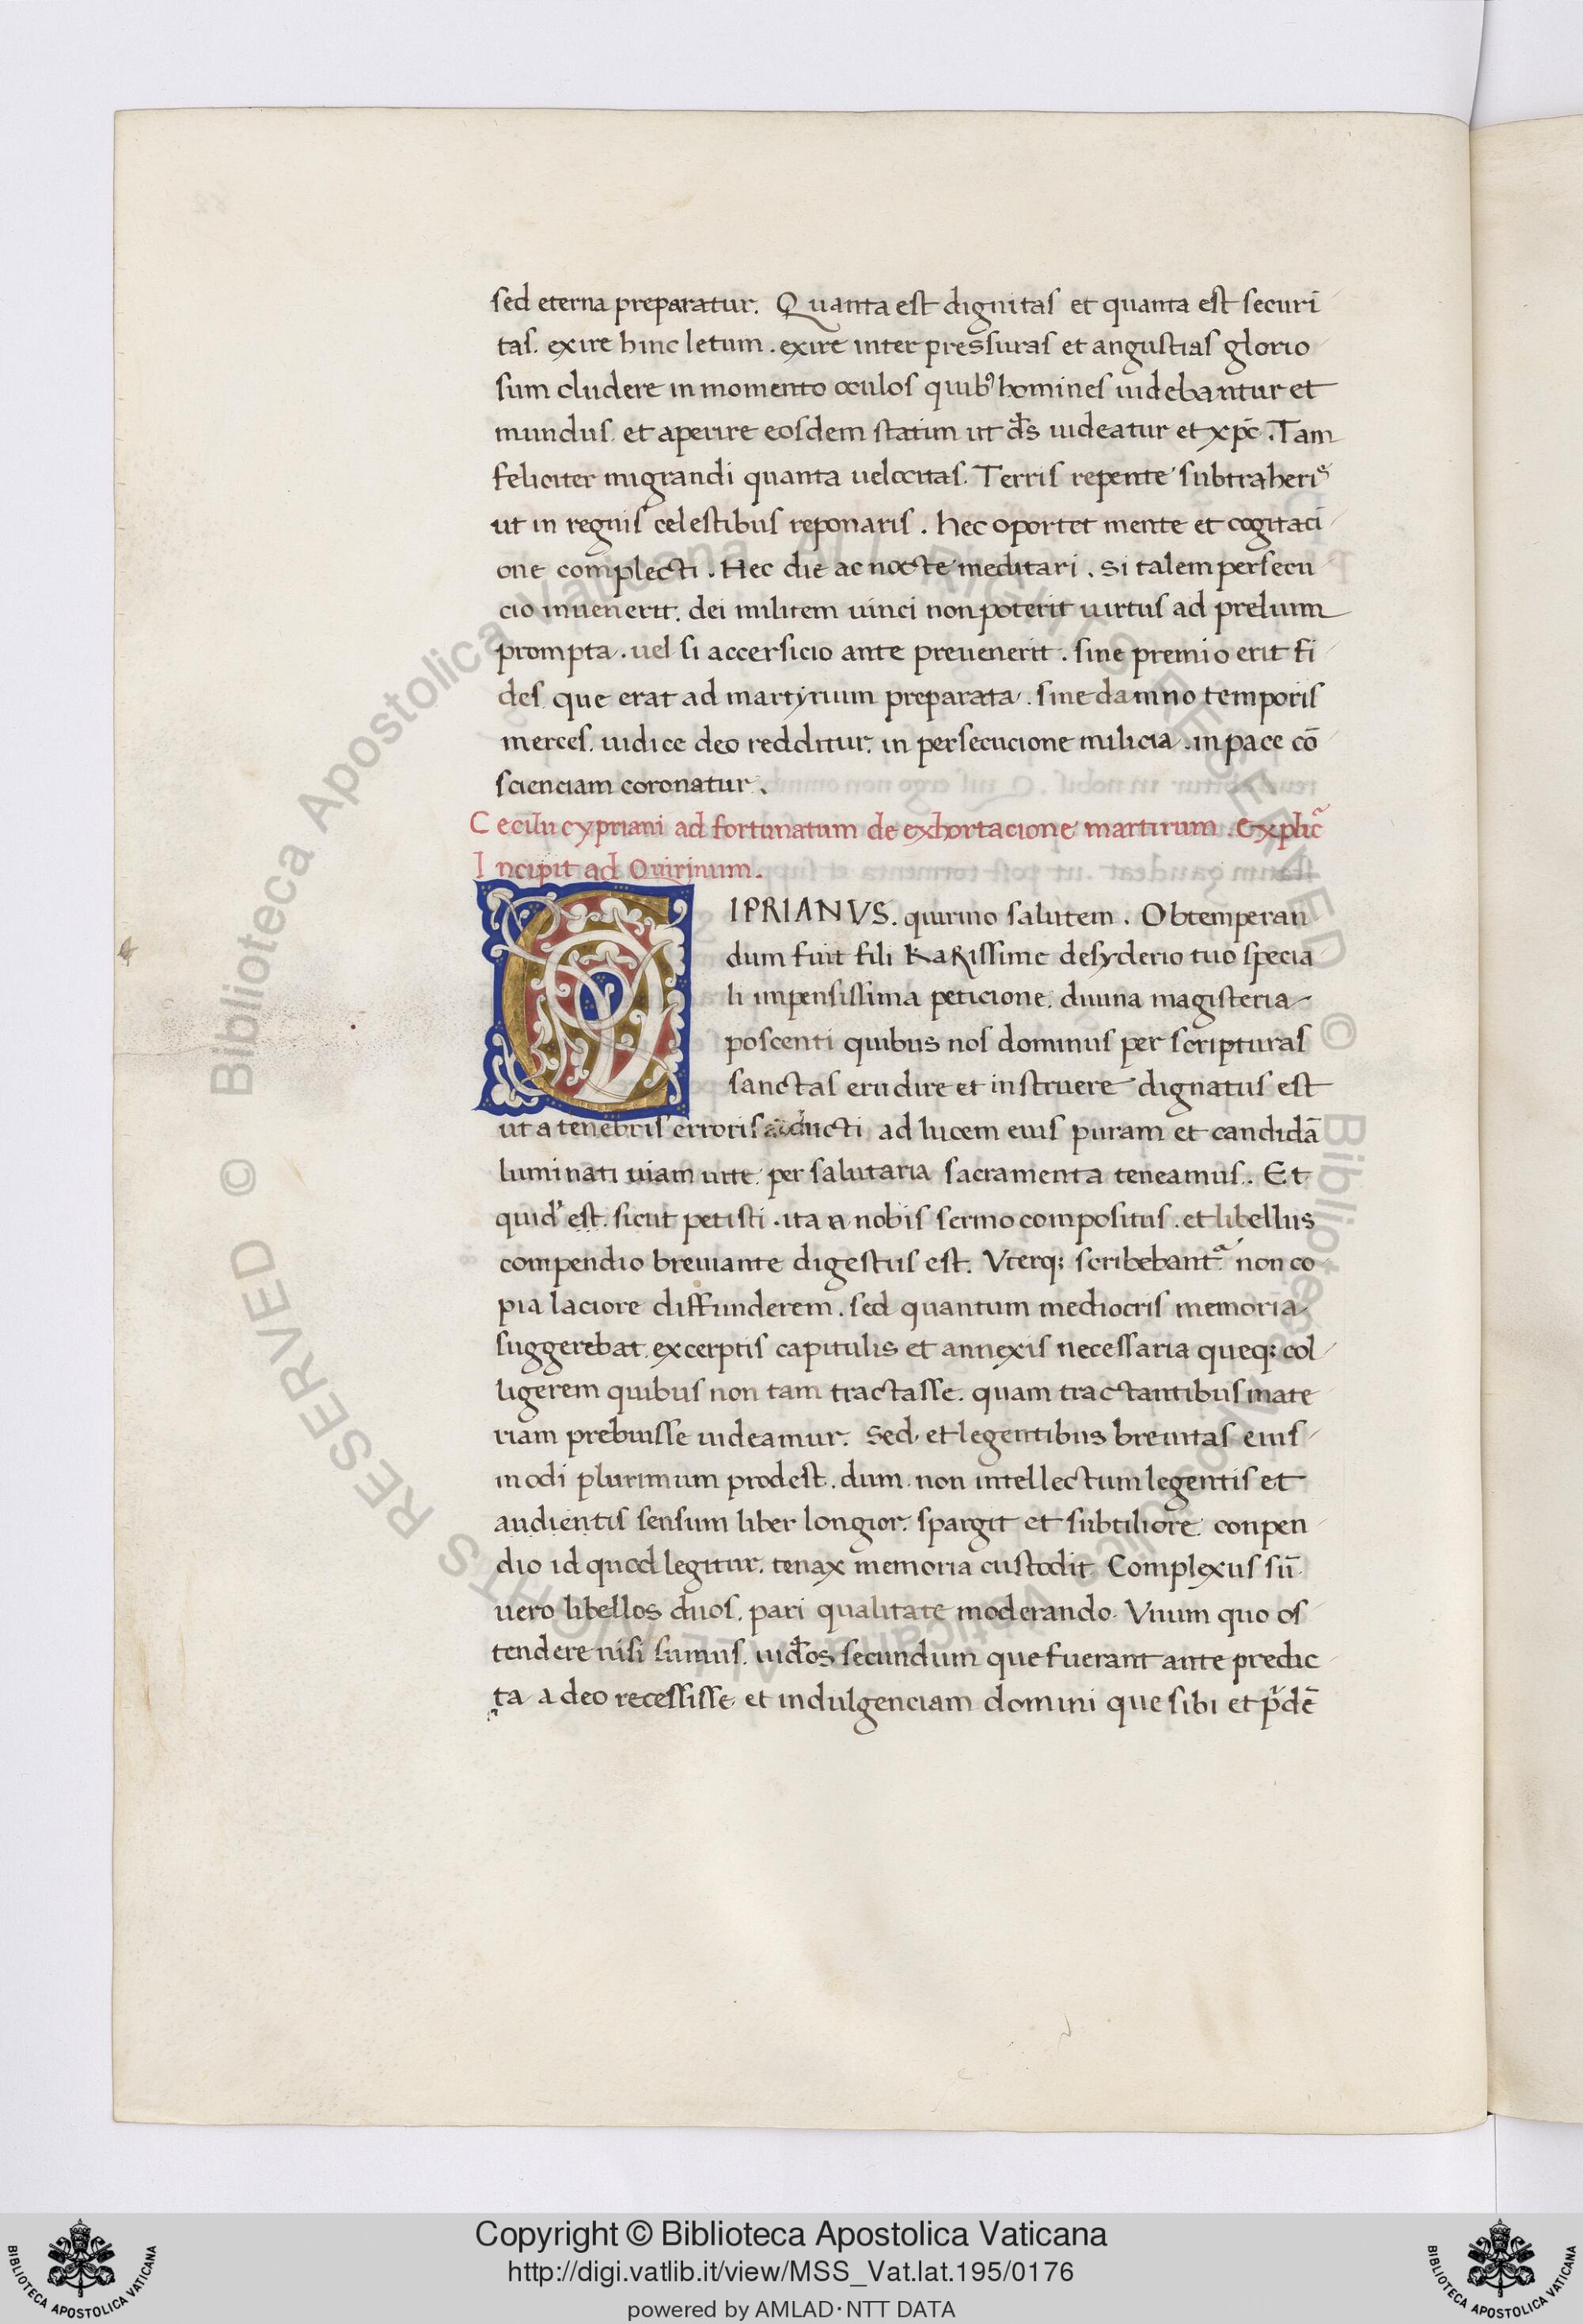 sed eterna preparatur. Quanta est dignitas et quanta est securi
tas. exire hinc letum. exire inter pressuras et angustias glorio
sum cludere in momento oculos quibꝰ homines uidebantur et
mundus. et aperire eosdem statim ut d̄s uideatur et xp̄c. Tam
feliciter migrandi quanta uelocitas. Terris repente subtraheris
ut in regnis celestibus reponaris. hec oportet mente et cogitaci
one complecti. Hec die ac nocte meditari. si talem persecu
cio inuenerit. dei militem uinci non poterit uirtus ad prelium
prompta. uel si accersicio ante preuenerit. sine premio erit fi
des que erat ad martyrium preparata. sine damno temporis
merces. iudice deo redditur. in persecucione milicia. in pace cō
scienciam coronatur.
Cecilii cypriani ad fortunatum de exhortacione martirum. Explic̃
Incipit ad Quirinum.
CIPRIANVS. quirino salutem. Obtemperan
dum fuit fili kaRissime desyderio tuo specia
li impensissima peticione. diuina magisteria
poscenti quibus nos dominus per scripturas
sanctas erudire et instruere dignatus est
ut a tenebris erroris ducti ad lucem eius puram et candidā
luminati uiam uite per salutaria sacramenta teneamus. Et
quid' est. sicut petisti. ita a nobis sermo compositus. et libellus
compendio breuiante digestus est. Vterq; scribebantᵃ non co
pia laciore diffunderem. sed quantum mediocris memoria
suggerebat. excerptis capitulis et annexis necessaria queq; col
ligerem quibus non tam tractasse. quam tractantibus mate
riam prebuisse uideamur. Sed et legentibus breuitas eius
modi plurimum prodest. dum non intellectum legentis et
audientis sensum liber longior. spargit et subtiliore conpen
dio id quod legitur. tenax memoria custodit Complexus sū
uero libellos duos. pari qualitate moderando. Vnum quo os
tendere nisi sumus. iud̄os secundum que fuerant ante predic
ta a deo recessisse et indulgenciam domini que sibi et p̄dē
Copyright © Biblioteca Apostolica Vaticana
http://digi.vatlib.it/view/MSS_Vat.lat.195/0176
powered by AMLAD·NTT DATA
BIBLIOTECA APOSTOLICA VATICANA
BIBLIOTECA APOSTOLICA VATICANA